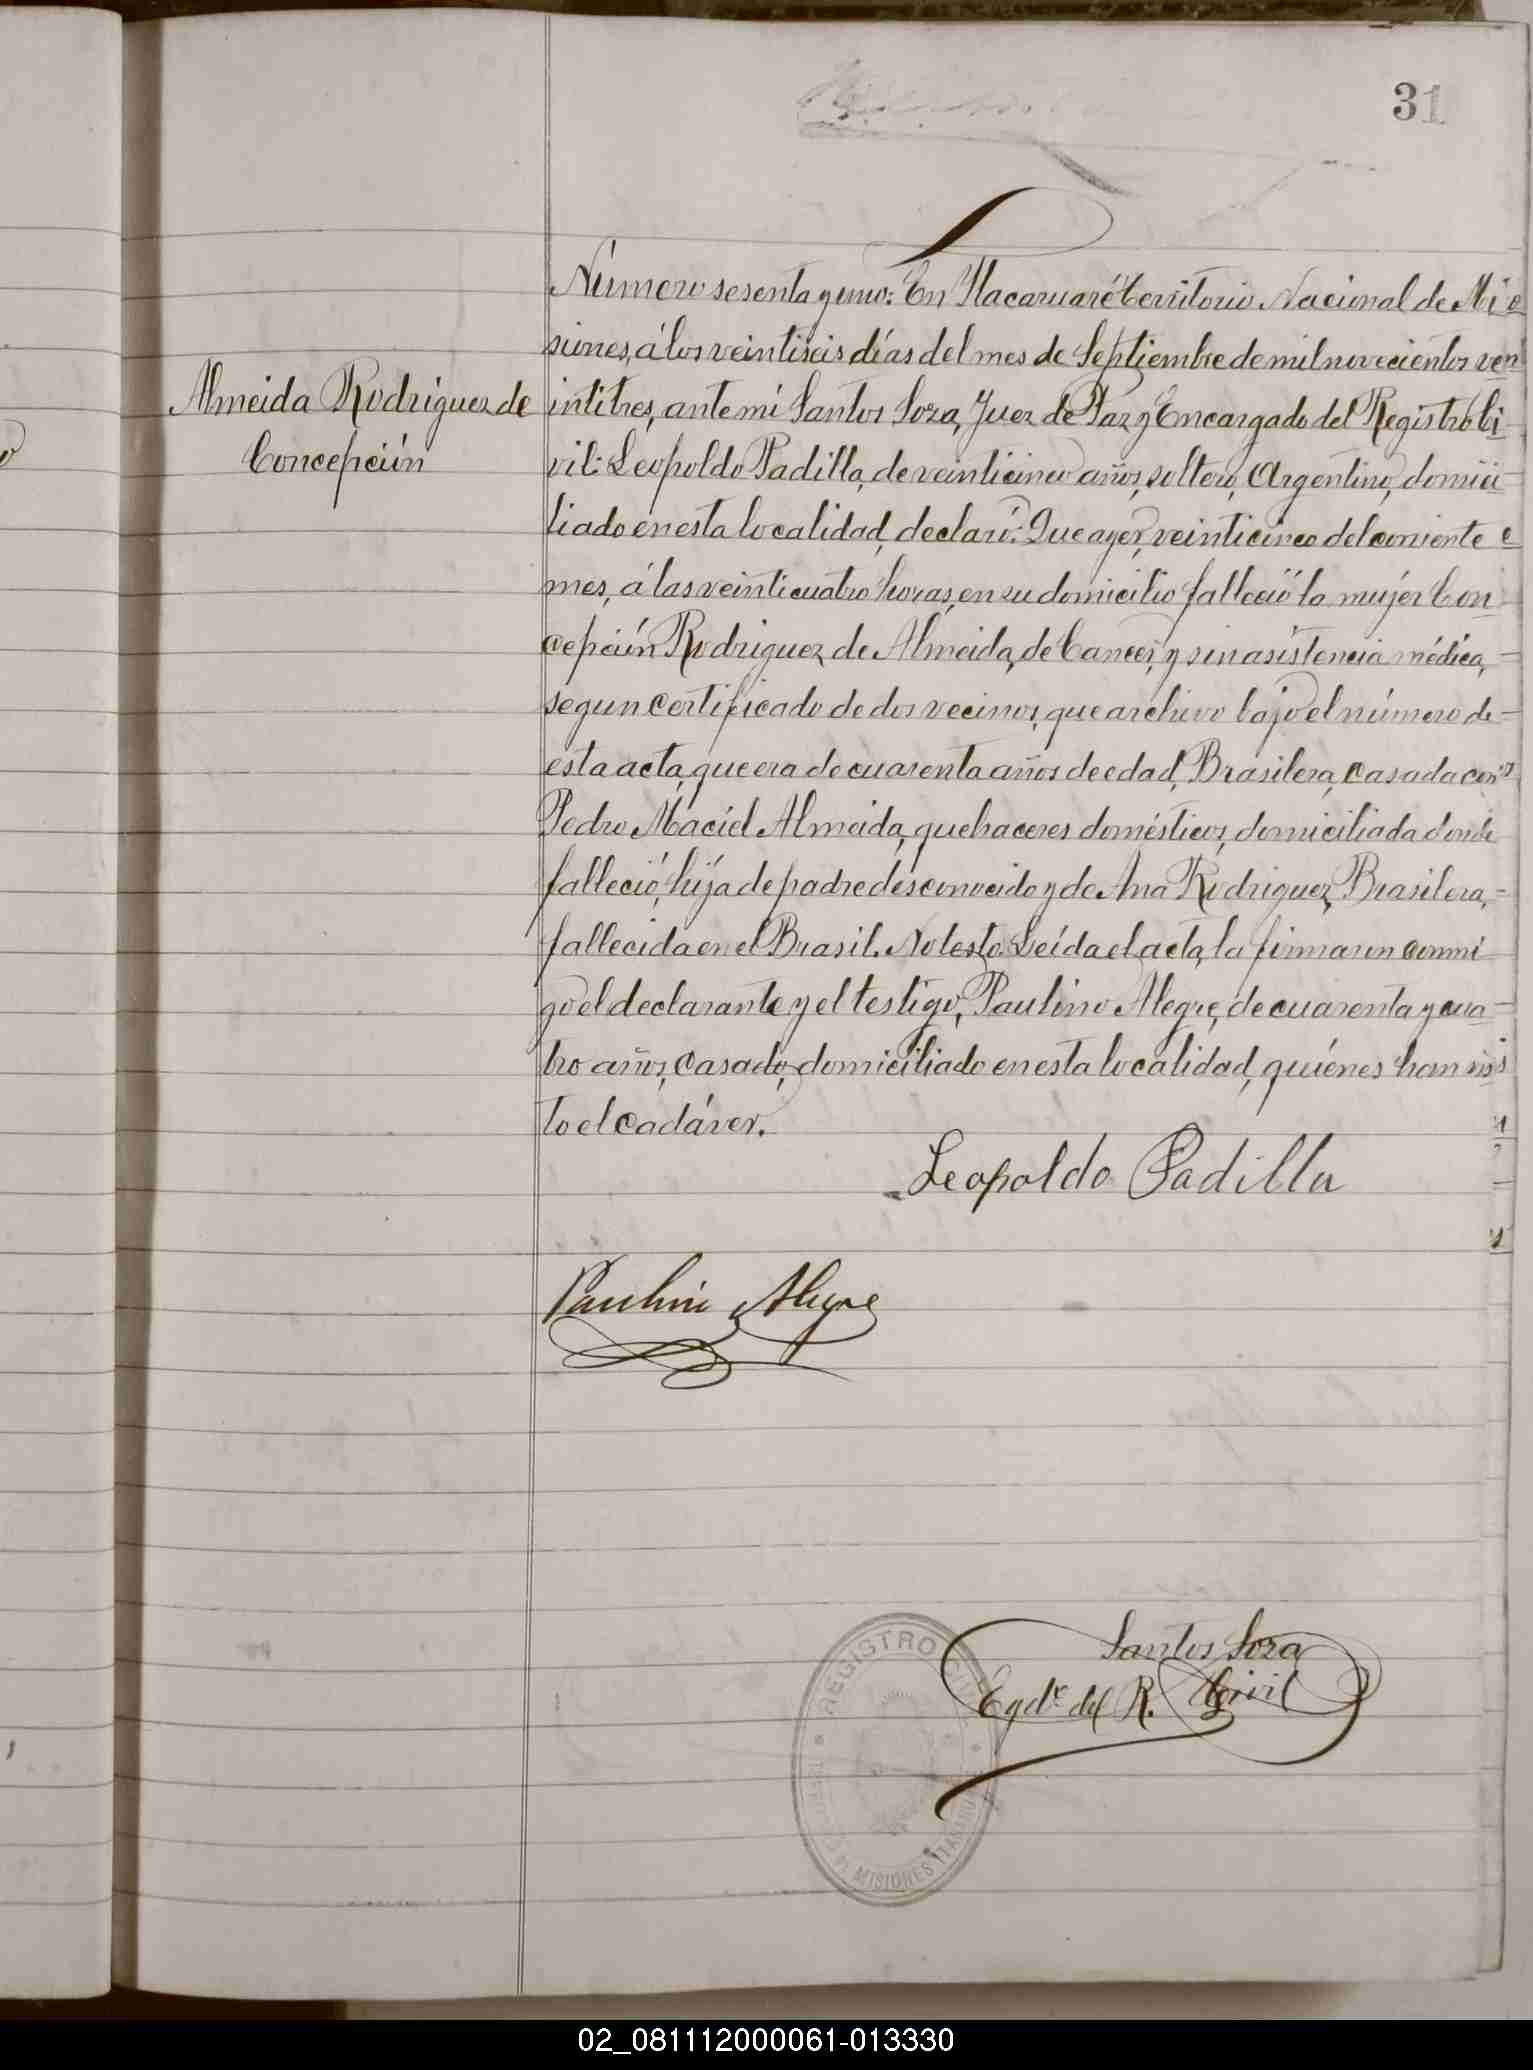 31
Número sesenta y uno: En Itacaruaré Territorio Nacional de Mi
siones, á los veintiseis días del mes de Septiembre de mil novecientos ve
Almeida Rodriguez de
Concepción
intitres, ante mi Santos Soza, Juez de Paz y Encargado del Registro Ci
vil: Leopoldo Padilla, de veinticinco años, soltero, Argentino, domici
liado en esta localidad, declaró: Que ayer, veinticinco del corriente
mes, á las veinticuatro horas, en su domicilio falleció la mujer Con
cepción Rodriguez de Almeida, de Cancer, y sin asistencia médica,
segun certificado de dos vecinos, que archivo bajo el número de
esta acta, que era de cuarenta años de edad, Brasilera, casada con
Pedro Maciel Almeida, quehaceres domésticos, domiciliada donde
falleció, hija de padre desconocido y de Ana Rodriguez, Brasilera,
fallecida en el Brasil. No testo. Leída el acta, la firmaron conmi
go el declarante y el testigo, Paulino Alegre, de cuarenta y cua
tro años, casado, domiciliado en esta localidad, quiénes han vis
to el cadáver.
Leopoldo Padilla
Paulino Alegre
Santos Soza
Egdo. del R. Civil
REGISTRO CIVIL
MISIONES
02_081112000061-013330